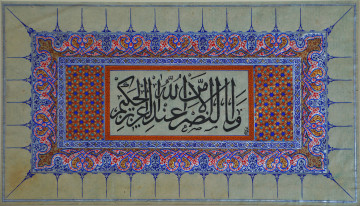 وما النصر إلا من عند الله العزيز الحكيم